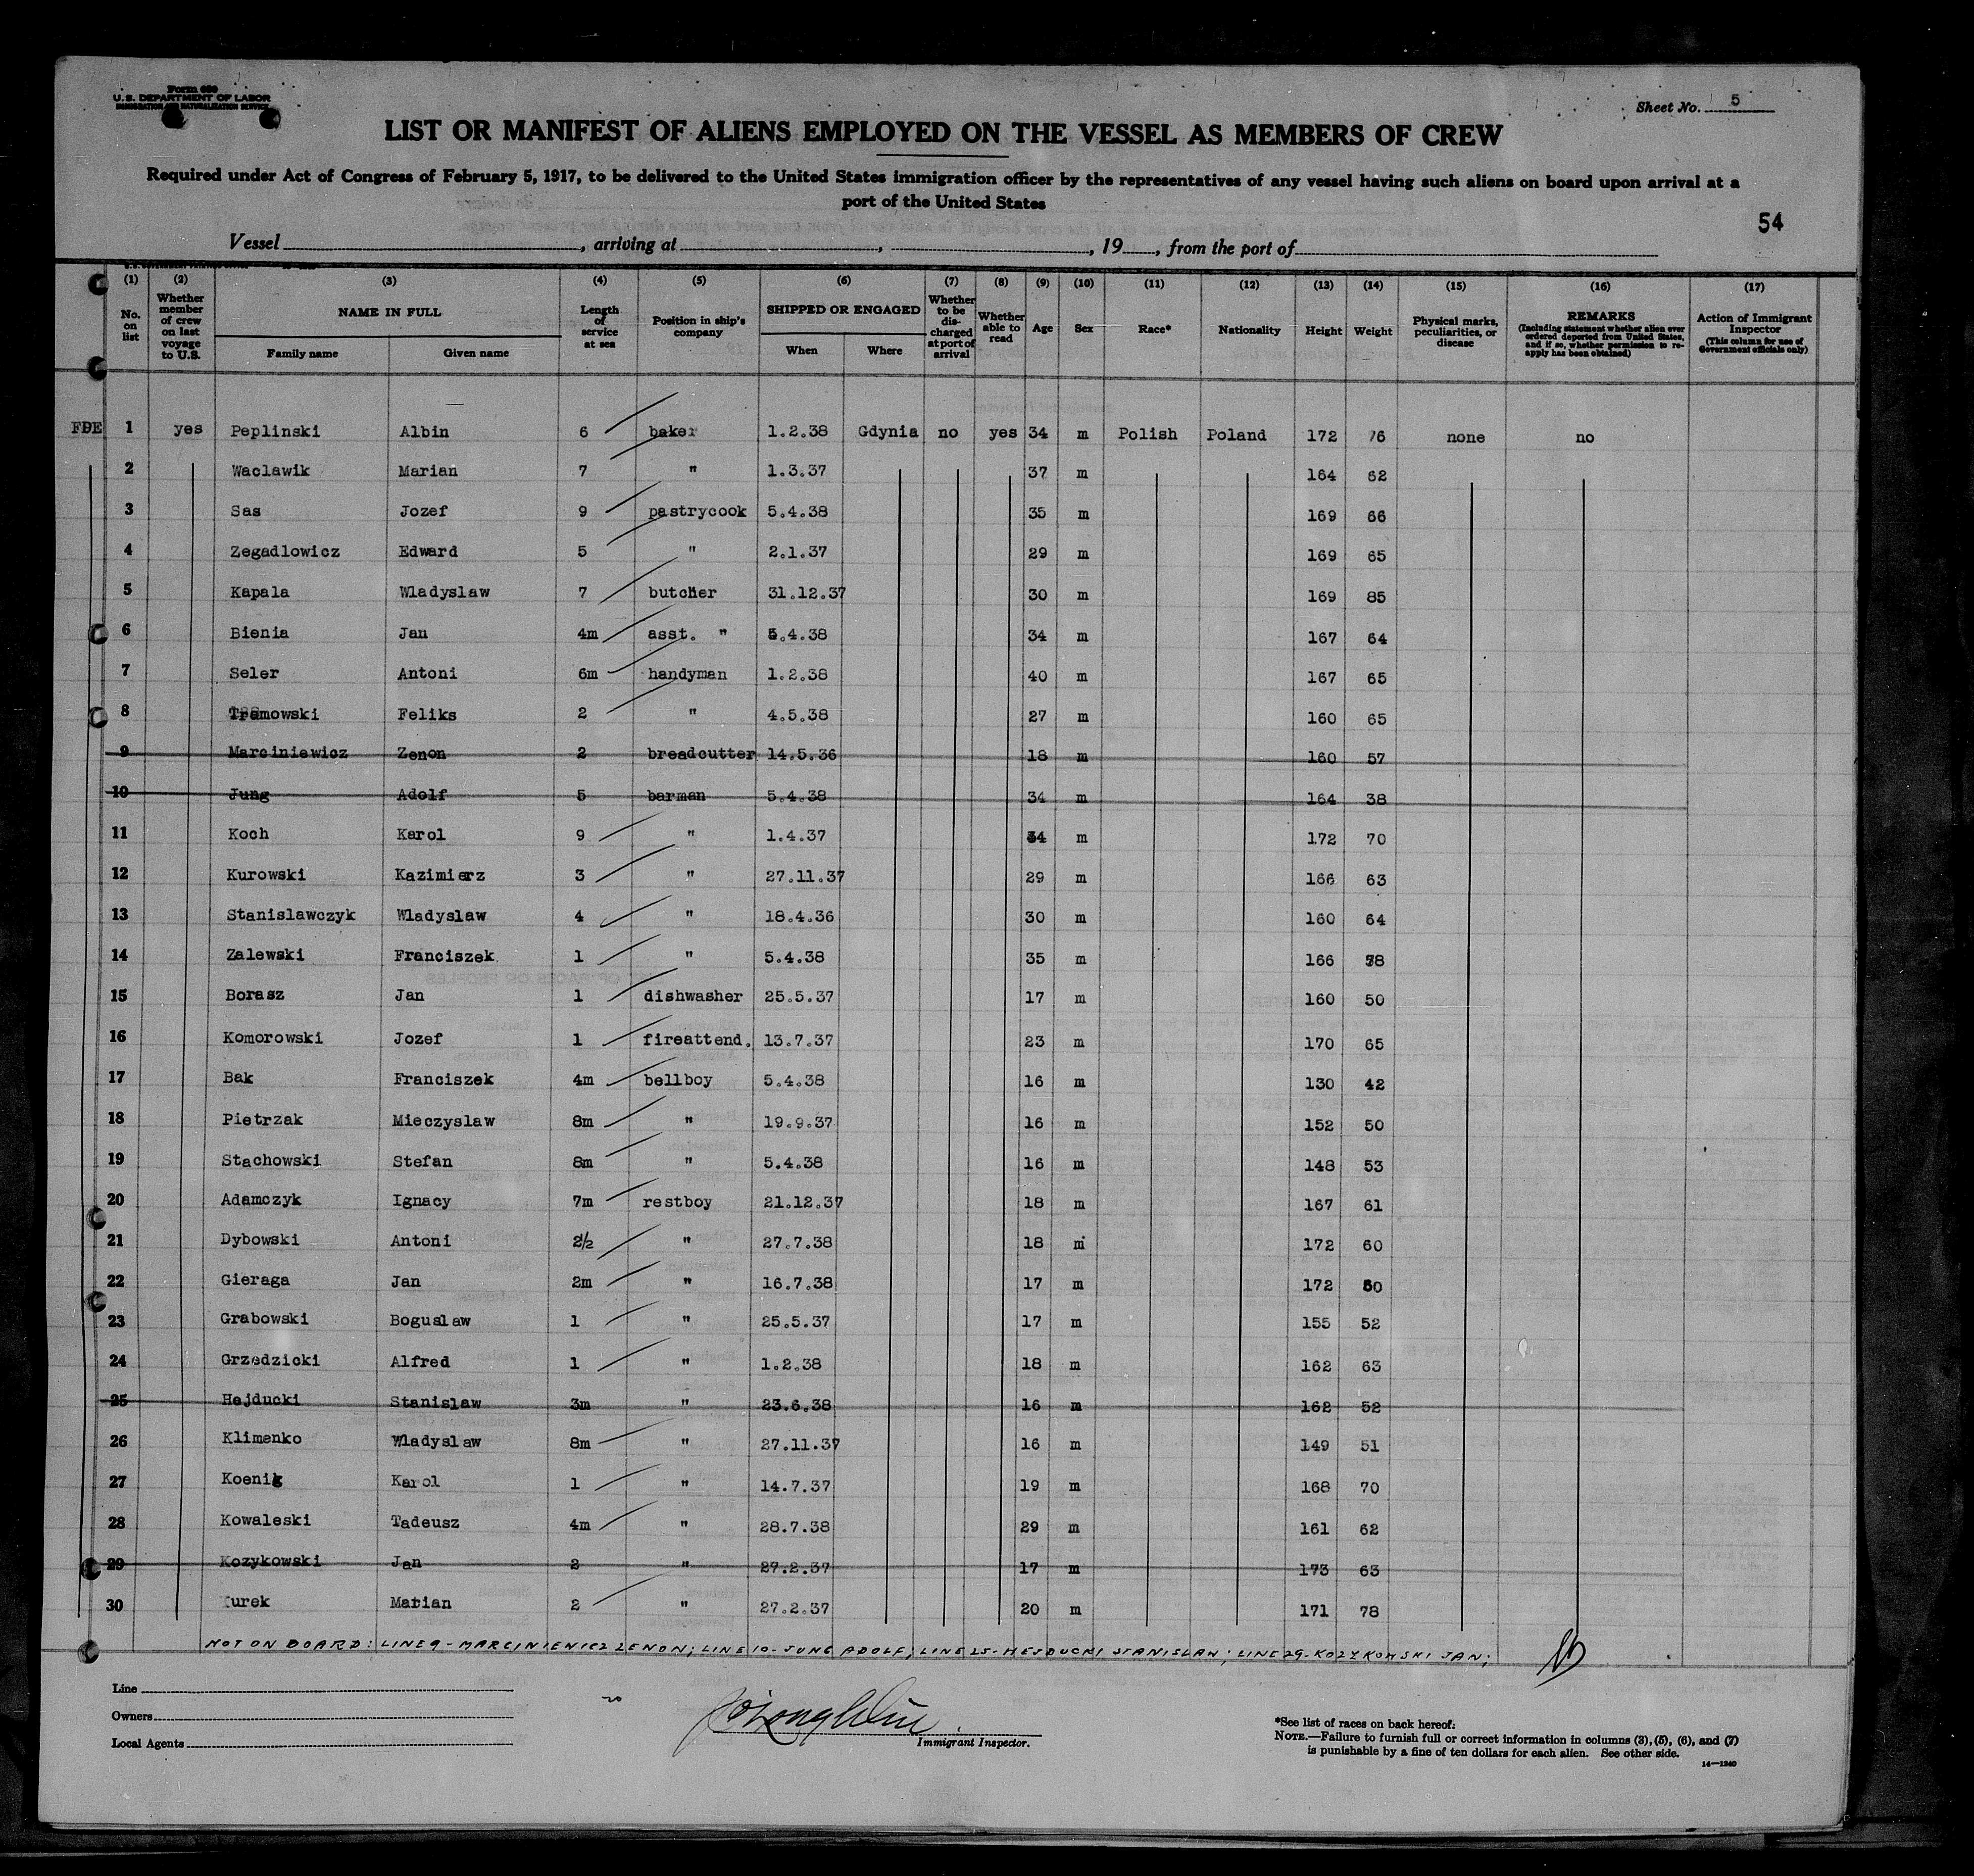 Form 680
U. S. DEPARTMENT OF LABOR
IMMIGRATION AND NATURALIZATION SERVICE
Sheet No. 5
LIST OR MANIFEST OF ALIENS EMPLOYED ON THE VESSEL AS MEMBERS OF CREW
Required under Act of Congress of February 5, 1917, to be delivered to the United States immigration officer by the representatives of any vessel having such aliens on board upon arrival at a
port of the United States
54
Vessel , arriving at , , 19 , from the port of
(1) No. on list
(2) Whether member of crew on last voyage to U.S.
(3) NAME IN FULL Family name Given name
(4) Length of service at sea
(5) Position in ship's company
(6) SHIPPED OR ENGAGED When Where
(7) Whether to be dis- charged at port of arrival
(8) Whether able to read
(9) Age
(10) Sex
(11) Race*
(12) Nationality
(13) Height
(14) Weight
(15) Physical marks, peculiarities, or disease
(16) REMARKS (Including statement whether alien ever ordered deported from United States, and if so, whether permission to re- apply has been obtained)
(17) Action of Immigrant Inspector (This column for use of Government officials only)
FDE 1 yes Peplinski Albin 6 baker 1.2.38 Gdynia no yes 34 m Polish Poland 172 76 none no
2 Waclawik Marian 7 " 1.3.37 37 m 164 62
3 Sas Jozef 9 pastrycook 5.4.38 35 m 169 66
4 Zegadlowicz Edward 5 " 2.1.37 29 m 169 65
5 Kapala Wladyslaw 7 butcher 31.12.37 30 m 169 85
6 Bienia Jan 4m asst. " 5.4.38 34 m 167 64
7 Seler Antoni 6m handyman 1.2.38 40 m 167 65
8 Tramowski Feliks 2 " 4.5.38 27 m 160 65
9 Marciniewicz Zenon 2 breadcutter 14.5.36 18 m 160 57
10 Jung Adolf 5 barman 5.4.38 34 m 164 38
11 Koch Karol 9 " 1.4.37 34 m 172 70
12 Kurowski Kazimierz 3 " 27.11.37 29 m 166 63
13 Stanislawczyk Wladyslaw 4 " 18.4.36 30 m 160 64
14 Zalewski Franciszek 1 " 5.4.38 35 m 166 78
15 Borasz Jan 1 dishwasher 25.5.37 17 m 160 50
16 Komorowski Jozef 1 fireattend. 13.7.37 23 m 170 65
17 Bak Franciszek 4m bellboy 5.4.38 16 m 130 42
18 Pietrzak Mieczyslaw 8m " 19.9.37 16 m 152 50
19 Stachowski Stefan 8m " 5.4.38 16 m 148 53
20 Adamczyk Ignacy 7m restboy 21.12.37 18 m 167 61
21 Dybowski Antoni 2½ " 27.7.38 18 m 172 60
22 Gieraga Jan 2m " 16.7.38 17 m 172 60
23 Grabowski Boguslaw 1 " 25.5.37 17 m 155 52
24 Grzedzicki Alfred 1 " 1.2.38 18 m 162 63
25 Hejducki Stanislaw 3m " 23.6.38 16 m 162 52
26 Klimenko Wladyslaw 8m " 27.11.37 16 m 149 51
27 Koenig Karol 1 " 14.7.37 19 m 168 70
28 Kowaleski Tadeusz 4m " 28.7.38 29 m 161 62
29 Kozykowski Jan 2 " 27.2.37 17 m 173 63
30 Turek Marian 2 " 27.2.37 20 m 171 78
NOT ON BOARD: LINE 9 - MARCINIENICZ ZENON; LINE 10 - JUNG ADOLF; LINE 25 - HEJDUCKI STANISLAW; LINE 29 - KOZYKOWSKI JAN;
Line
Owners
Local Agents
Immigrant Inspector.
*See list of races on back hereof.
NOTE.—Failure to furnish full or correct information in columns (3), (5), (6), and (7)
is punishable by a fine of ten dollars for each alien. See other side.
14—1240